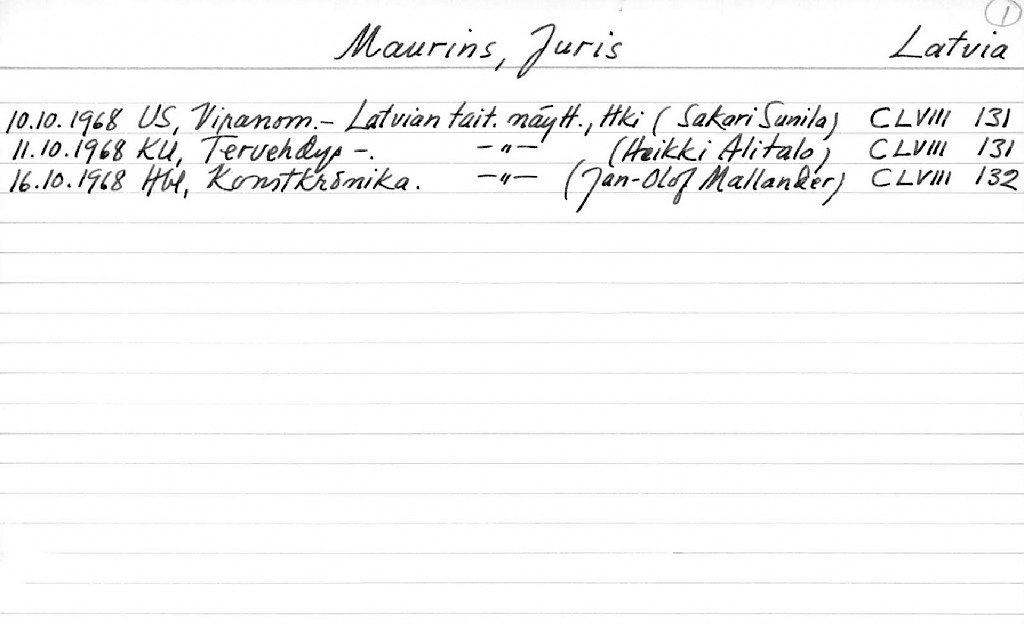 1
Maurins, Juris Latvia
10.10.1968 US, Vipanom. - Latvian tait. näytt., Hki (Sakari Sunila) CLVIII 131
11.10.1968 KU, Tervehdys -. -"- (Heikki Alitalo) CLVIII 131
16.10.1968 Hbl, Konstkrönika. -"- (Jan-Olof Mallander) CLVIII 132